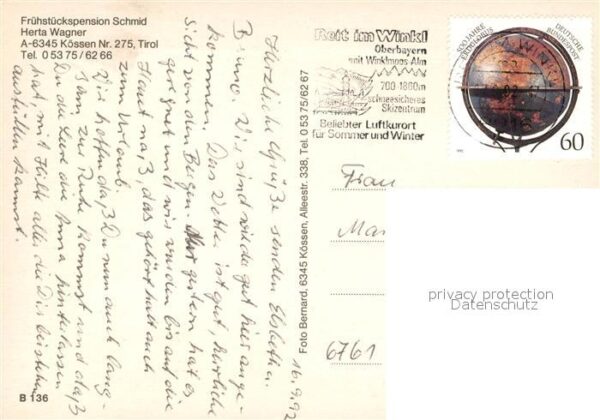 Frühstückspension Schmid
Herta Wagner
A-6345 Kössen Nr. 275, Tirol
Tel. 0 53 75 / 62 66
Herzliche Grüße senden Elsbeth u.
Bruno. Wir sind wieder gut hier ange-
kommen. Das Wetter ist gut, herrliche
Sicht von den Bergen. Nur gestern hat es
geregnet und wir wurden bis auf die
Haut naß, das gehört halt auch
zum Urlaub.
Wir hoffen, daß Du nun auch lang-
sam zur Ruhe kommst und daß
Du die Leere die Anna hinterlassen
hat, mit Hilfe aller die Dir beistehen
ausfüllen kannst.
16.9.92
B 136
Foto Bernard, 6345 Kössen, Alleestr. 338, Tel. 0 53 75/62 67
Reit im Winkl
Oberbayern
mit Winklmoos Alm
700-1800m
schneesicheres
Skizentrum
Beliebter Luftkurort
für Sommer und Winter
500 JAHRE
ERDGLOBUS
DEUTSCHE
BUNDESPOST
60
1992
Frau
Mar
6761
privacy protection
Datenschutz